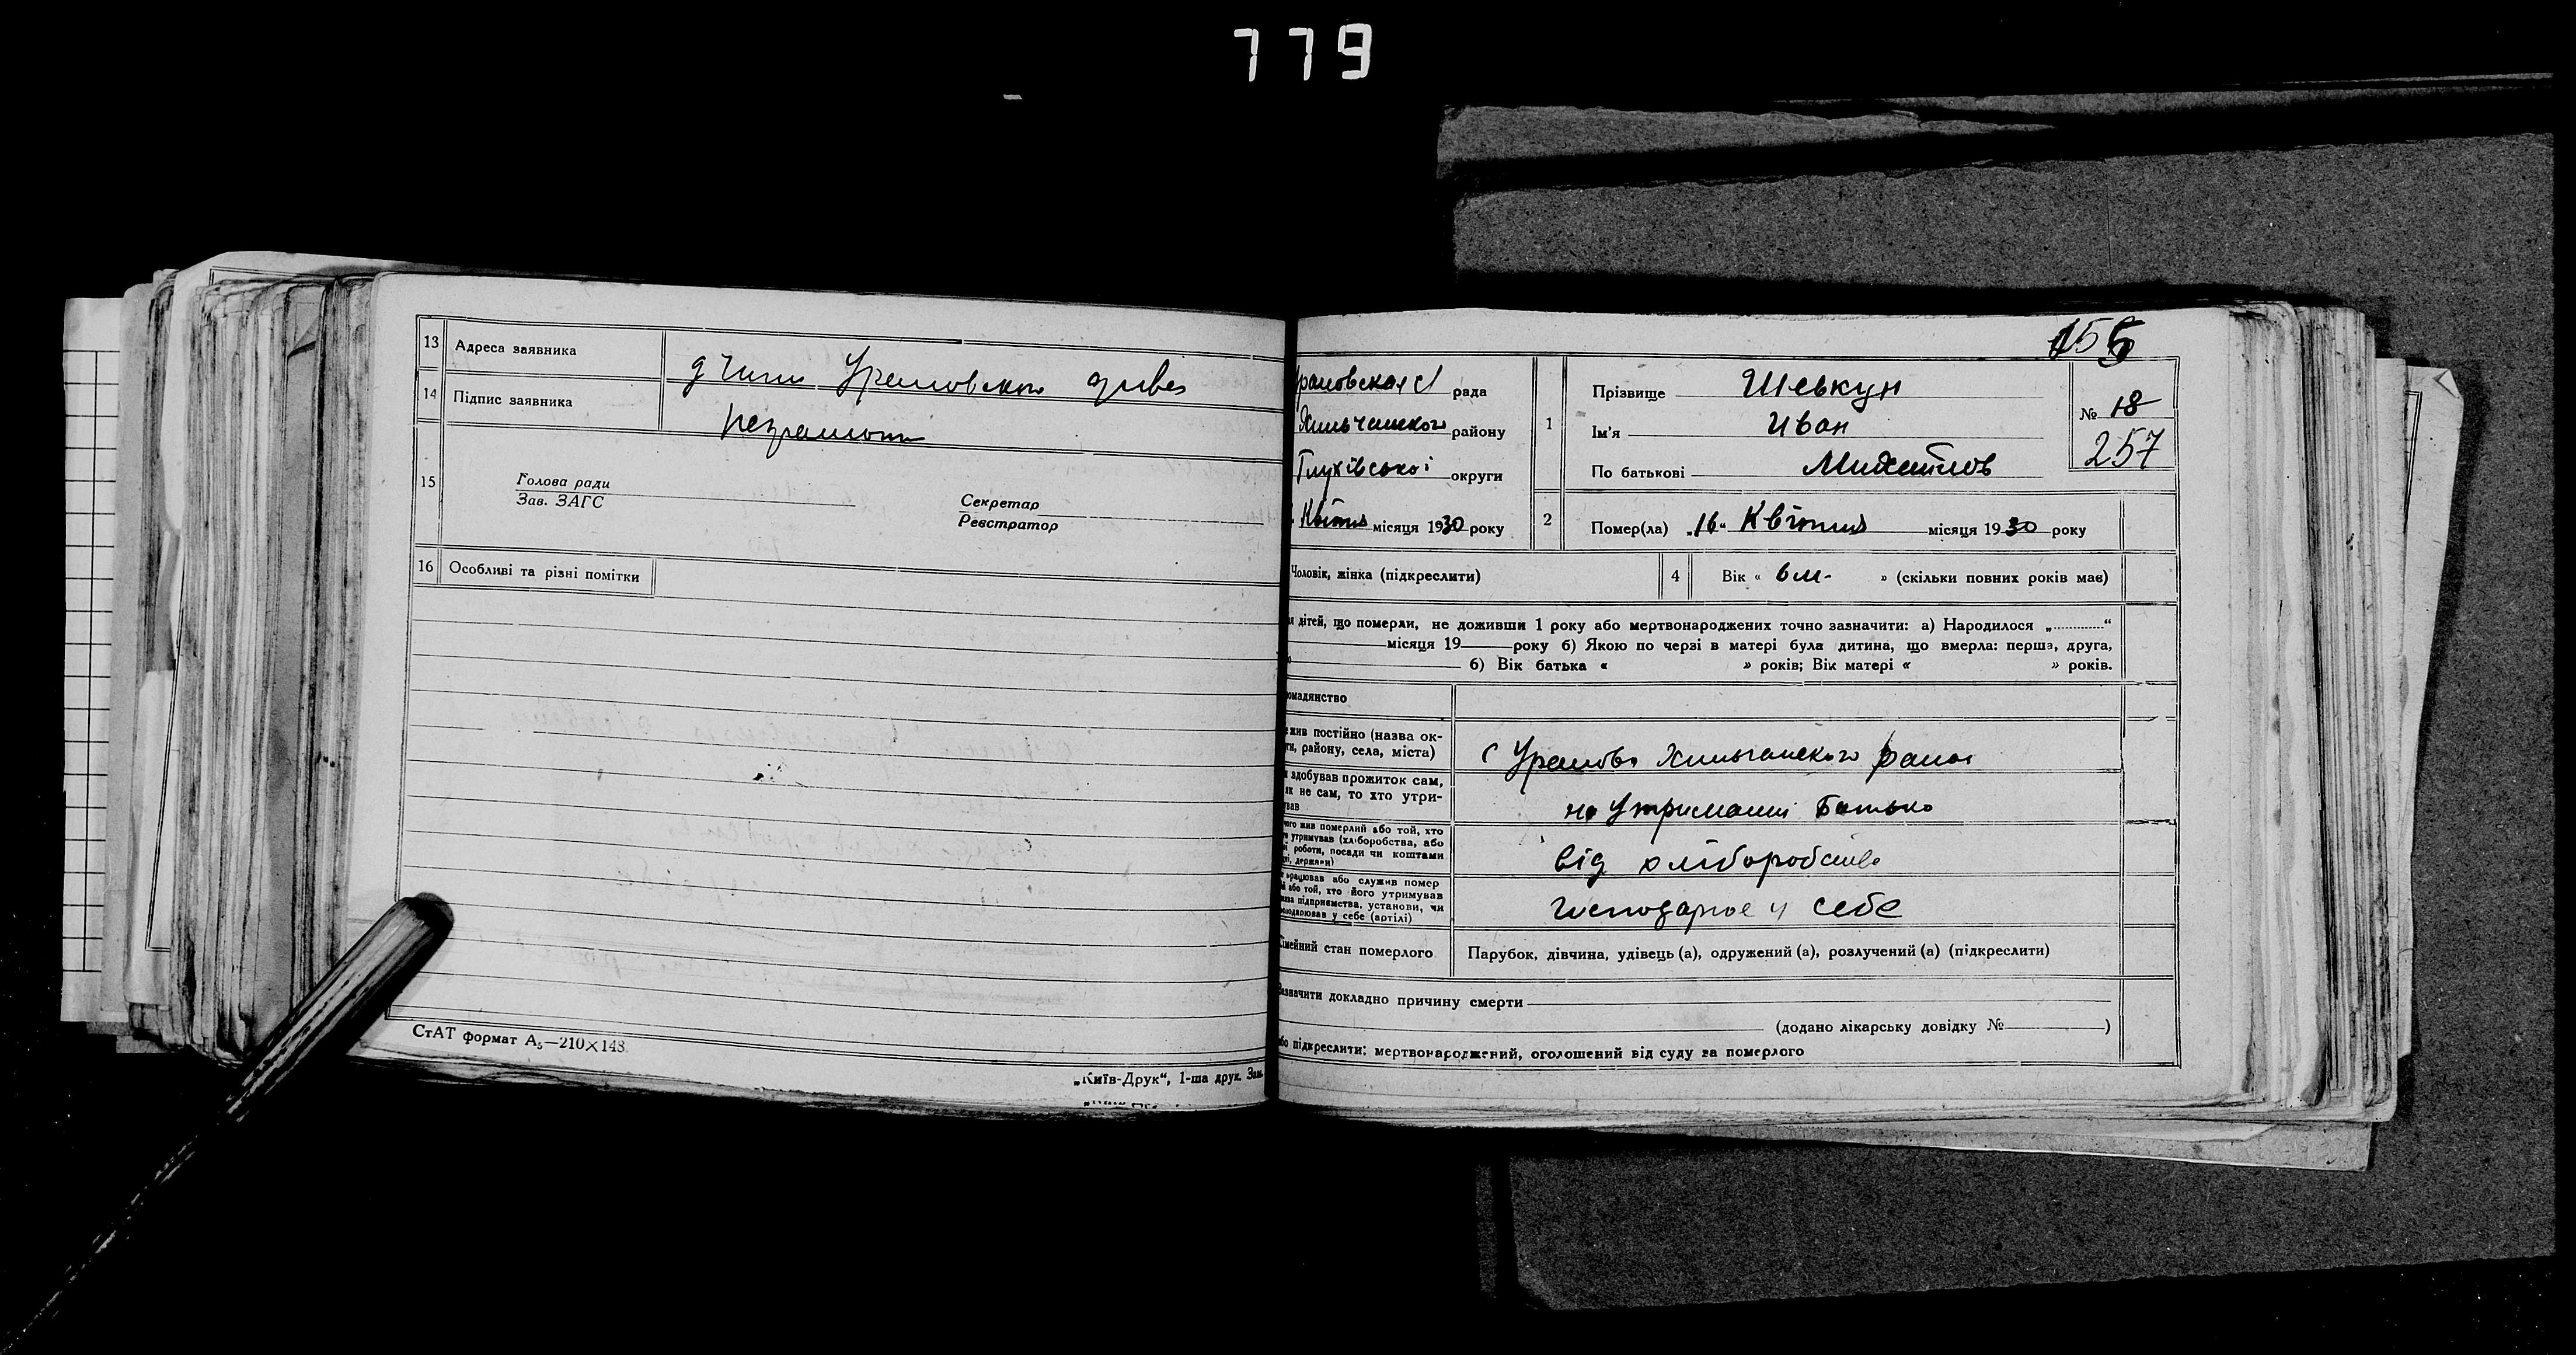 779
13 Адреса заявника
14 Підпис заявника
неграмотн
15 Голова ради
Зав. ЗАГС
Секретар
Реєстратор
16 Особливі та різні помітки
СтАТ формат А₅—210×148
„Київ-Друк“, 1-ша друк. Зам.
155
рада
району
Глухівської округи
місяця 1930 року
1 Прізвище Шевкун
Ім'я Иван
По батькові Михайлов
№ 18
257
2 Помер(ла) „16“ Квітня місяця 1930 року
Чоловік, жінка (підкреслити)
4 Вік « 6 м. » (скільки повних років мав)
дітей, що померли, не доживши 1 року або мертвонароджених точно зазначити: а) Народилося „ “
місяця 19 року б) Якою по черзі в матері була дитина, що вмерла: перша, друга,
б) Вік батька « » років; Вік матері « » років.
омадянство
жив постійно (назва ок-
ги, району, села, міста)
с
здобував прожиток сам,
як не сам, то хто утри-
вав
на утриманні Батька
ого жив померлий або той, хто
утримував (хліборобства, або
роботи, посади чи коштами
держави)
від хліборобства
працював або служив помер
або той, хто його утримував
ва підприємства, установи, чи
господарював у себе (артілі)
господарює у себе
імейний стан померлого
Парубок, дівчина, удівець (а), одружений (а), розлучений (а) (підкреслити)
значити докладно причину смерти
(додано лікарську довідку № )
бо підкреслити: мертвонароджений, оголошений від суду за померлого